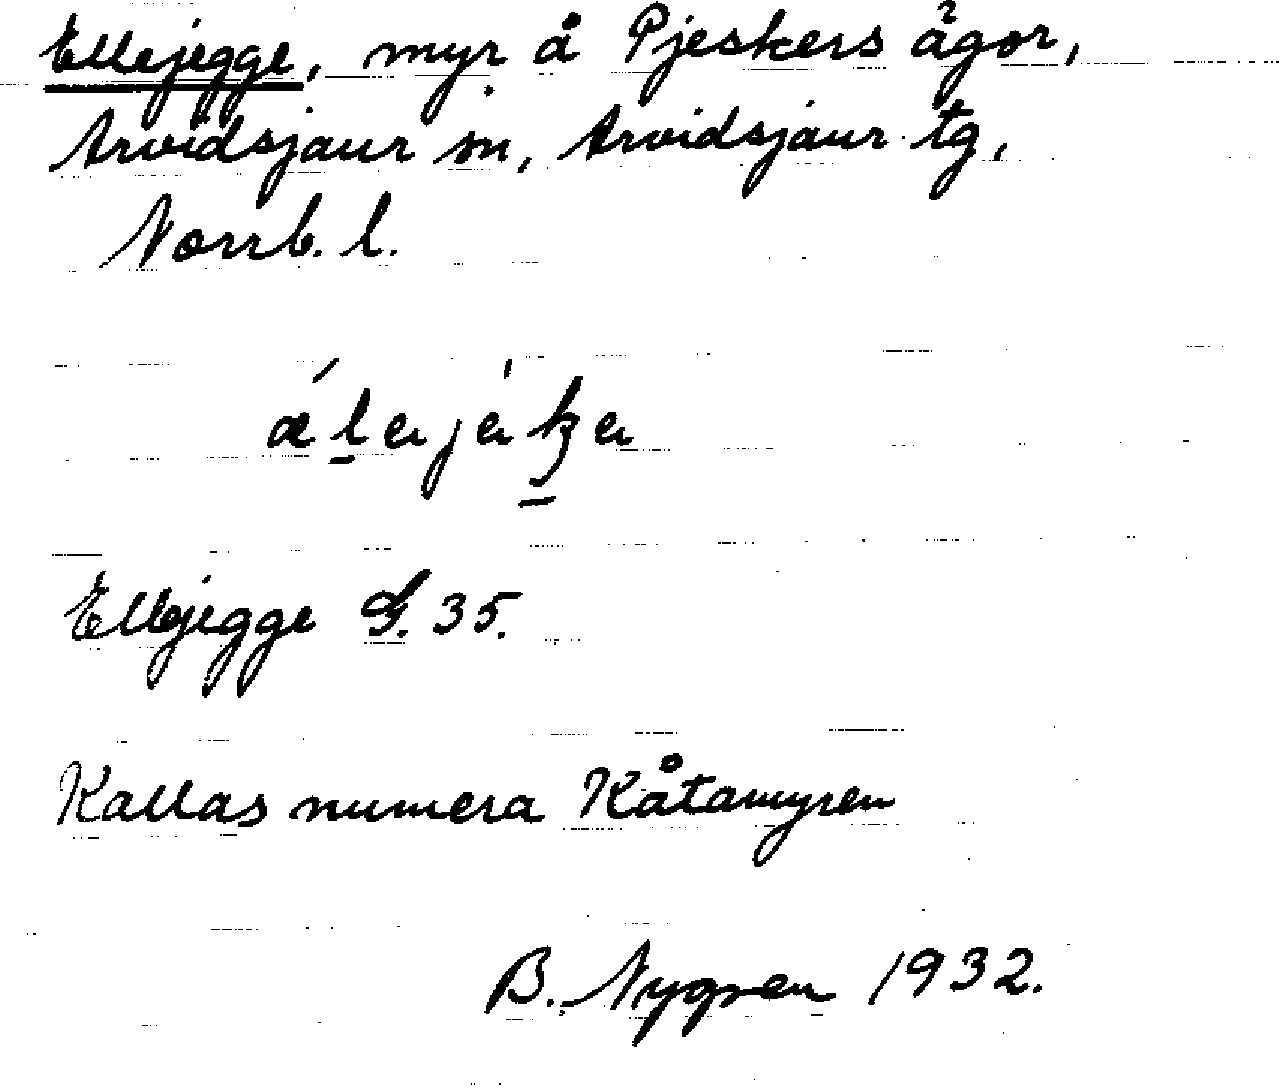 Ellejegge, myr å Pjeskers ägor,
Arvidsjaur sn, Arvidsjaur tg,
Norrb. l.
Ellejegge G. 35.
Kallas numera Kåtamyren
B. Nygren 1932.